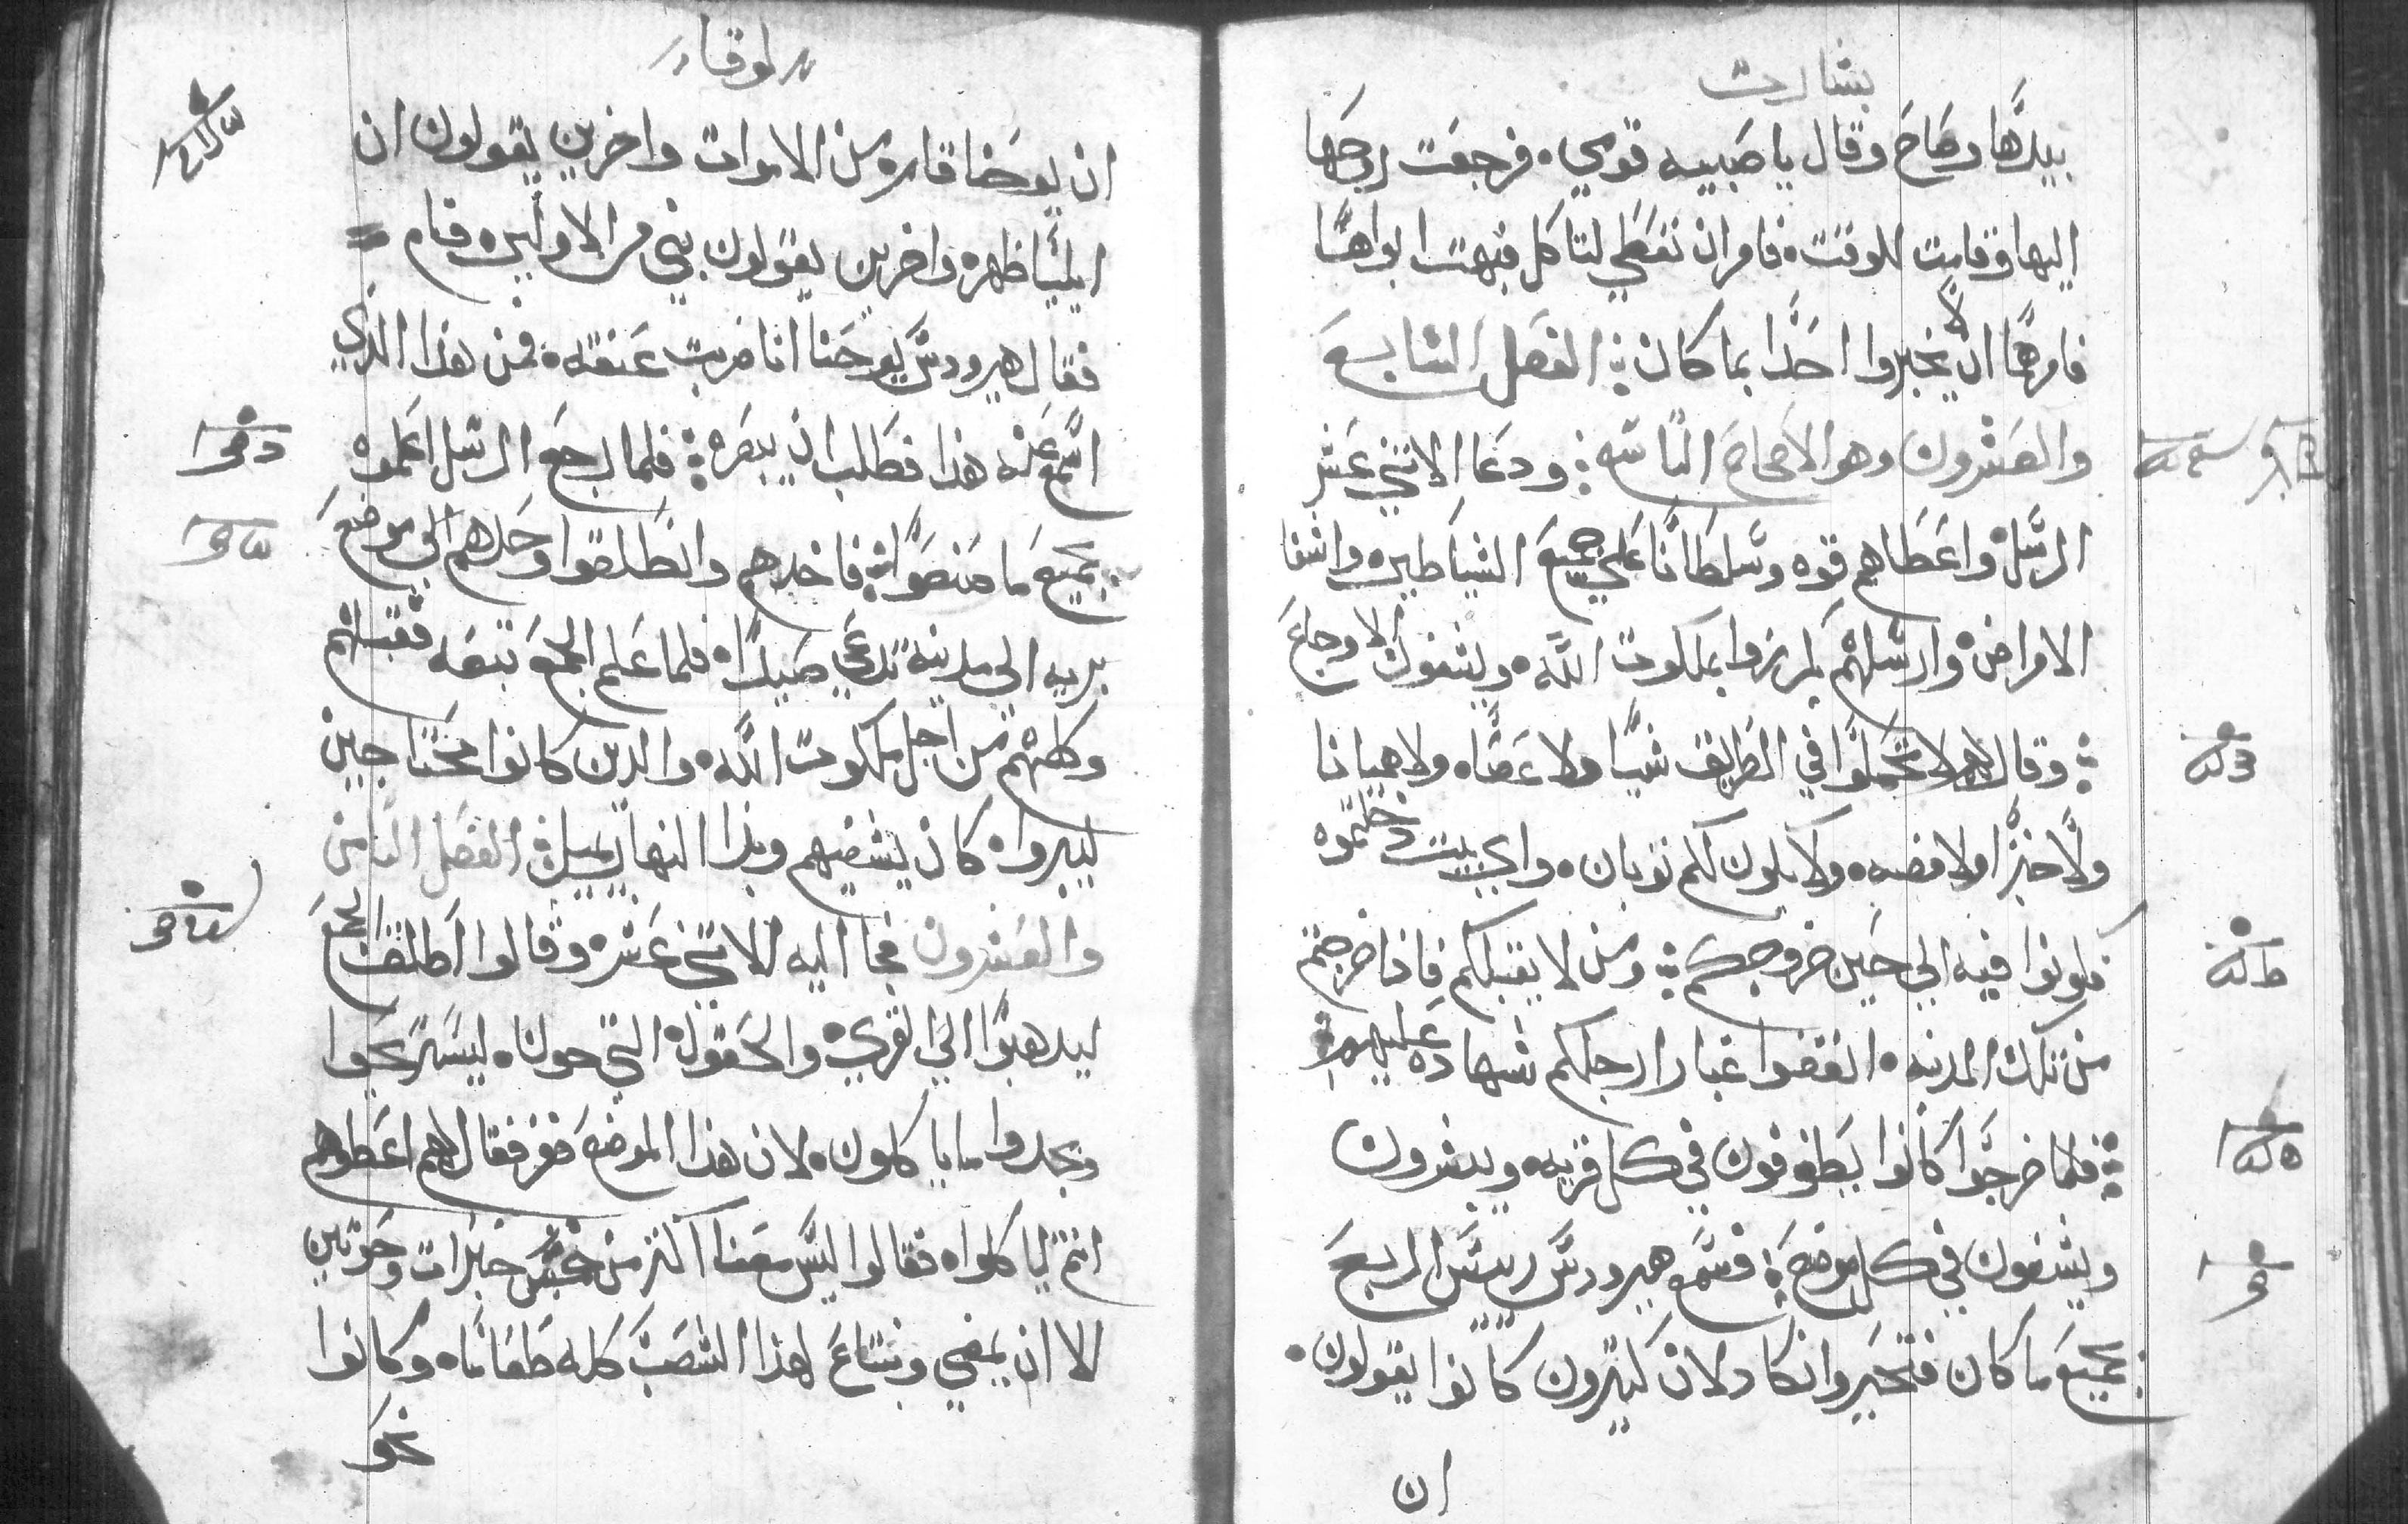 بشارت
بيدها وصاح وقال يا صبيه قومي فرجعت روحها
اليها وقامت للوقت فامر ان تعطي لتاكل فبهت ابواها
فامرهما ان لا يخبروا احدا بما كان الفصل السابع
والعشرون وهو الاصحاح التاسع ودعا الاثني عشر
الرسل واعطاهم قوه وسلطانا على جميع الشياطين واشفا
الامراض وارسلهم ليكرزوا بملكوت الله ويشفون الاوجاع
وقال لهم لا تحملوا في الطريق شيا ولا عصا ولا هميانا
ولا خبزا ولا فضه ولا يكون لكم ثوبان واي بيت دخلتموه
فكونوا فيه الي حين خروجكم ومن لا يقبلكم فاذا خرجتم
من تلك المدينه انفضوا غبار ارجلكم شهاده عليهم
فلما خرجوا كانوا يطوفون في كل قريه ويبشرون
ويشفون في كل موضع فسمع هيرودس رييس الربع
بجميع ما كان فتحير وانكاد لان كثيرون كانوا يقولون
ان
لوقا
ان يوحنا قام من الاموات واخرين يقولون ان
ايليا ظهر واخرين يقولون نبي من الاولين قام
فقال هيرودس يوحنا انا ضربت عنقه فمن هذا الذي
اسمع عنه هذا فطلب ان يبصره فلما رجع الرسل اعلموه
بجميع ما صنعوا فاخدهم وانطلقوا وحدهم الي موضع
بريه الي مدينه تدعي صيدا فلما علم الجمع تبعه فقبلهم
وكلمهم من اجل ملكوت الله والدين كانوا محتاجين
ليبروا كان يشفيهم وبدا النهار يميل الفصل الثامن
والعشرون فجا اليه الاثني عشر وقالوا اطلق الجمع
ليدهبوا الي القري والحقول التي حولنا ليستريحوا
ويجدوا ما ياكلون لان هذا الموضع قفر فقال لهم اعطوهم
انتم لياكلوا فقالوا ليس معنا اكثر من خمس خبزات وحوتين
الا ان نمضي ونبتاع لهذا الشعب كله طعاما وكانوا
نحو